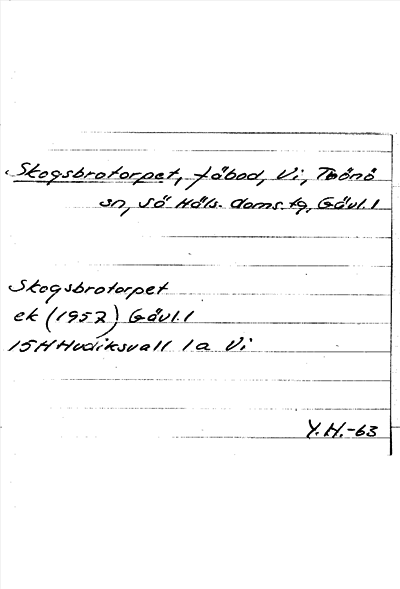 Skogsbrotorpet, fäbod, Vi, Trönö
sn, Sö Häls. doms. tg, Gävl. l
Skogsbrotorpet
ek (1957) Gävl. l
15H Hudiksvall 1a Vi
Y. H. -63